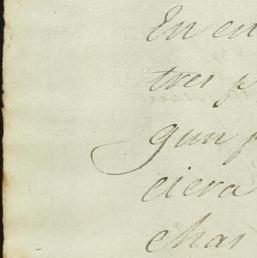 En en
tres p
gun p
ciera
char